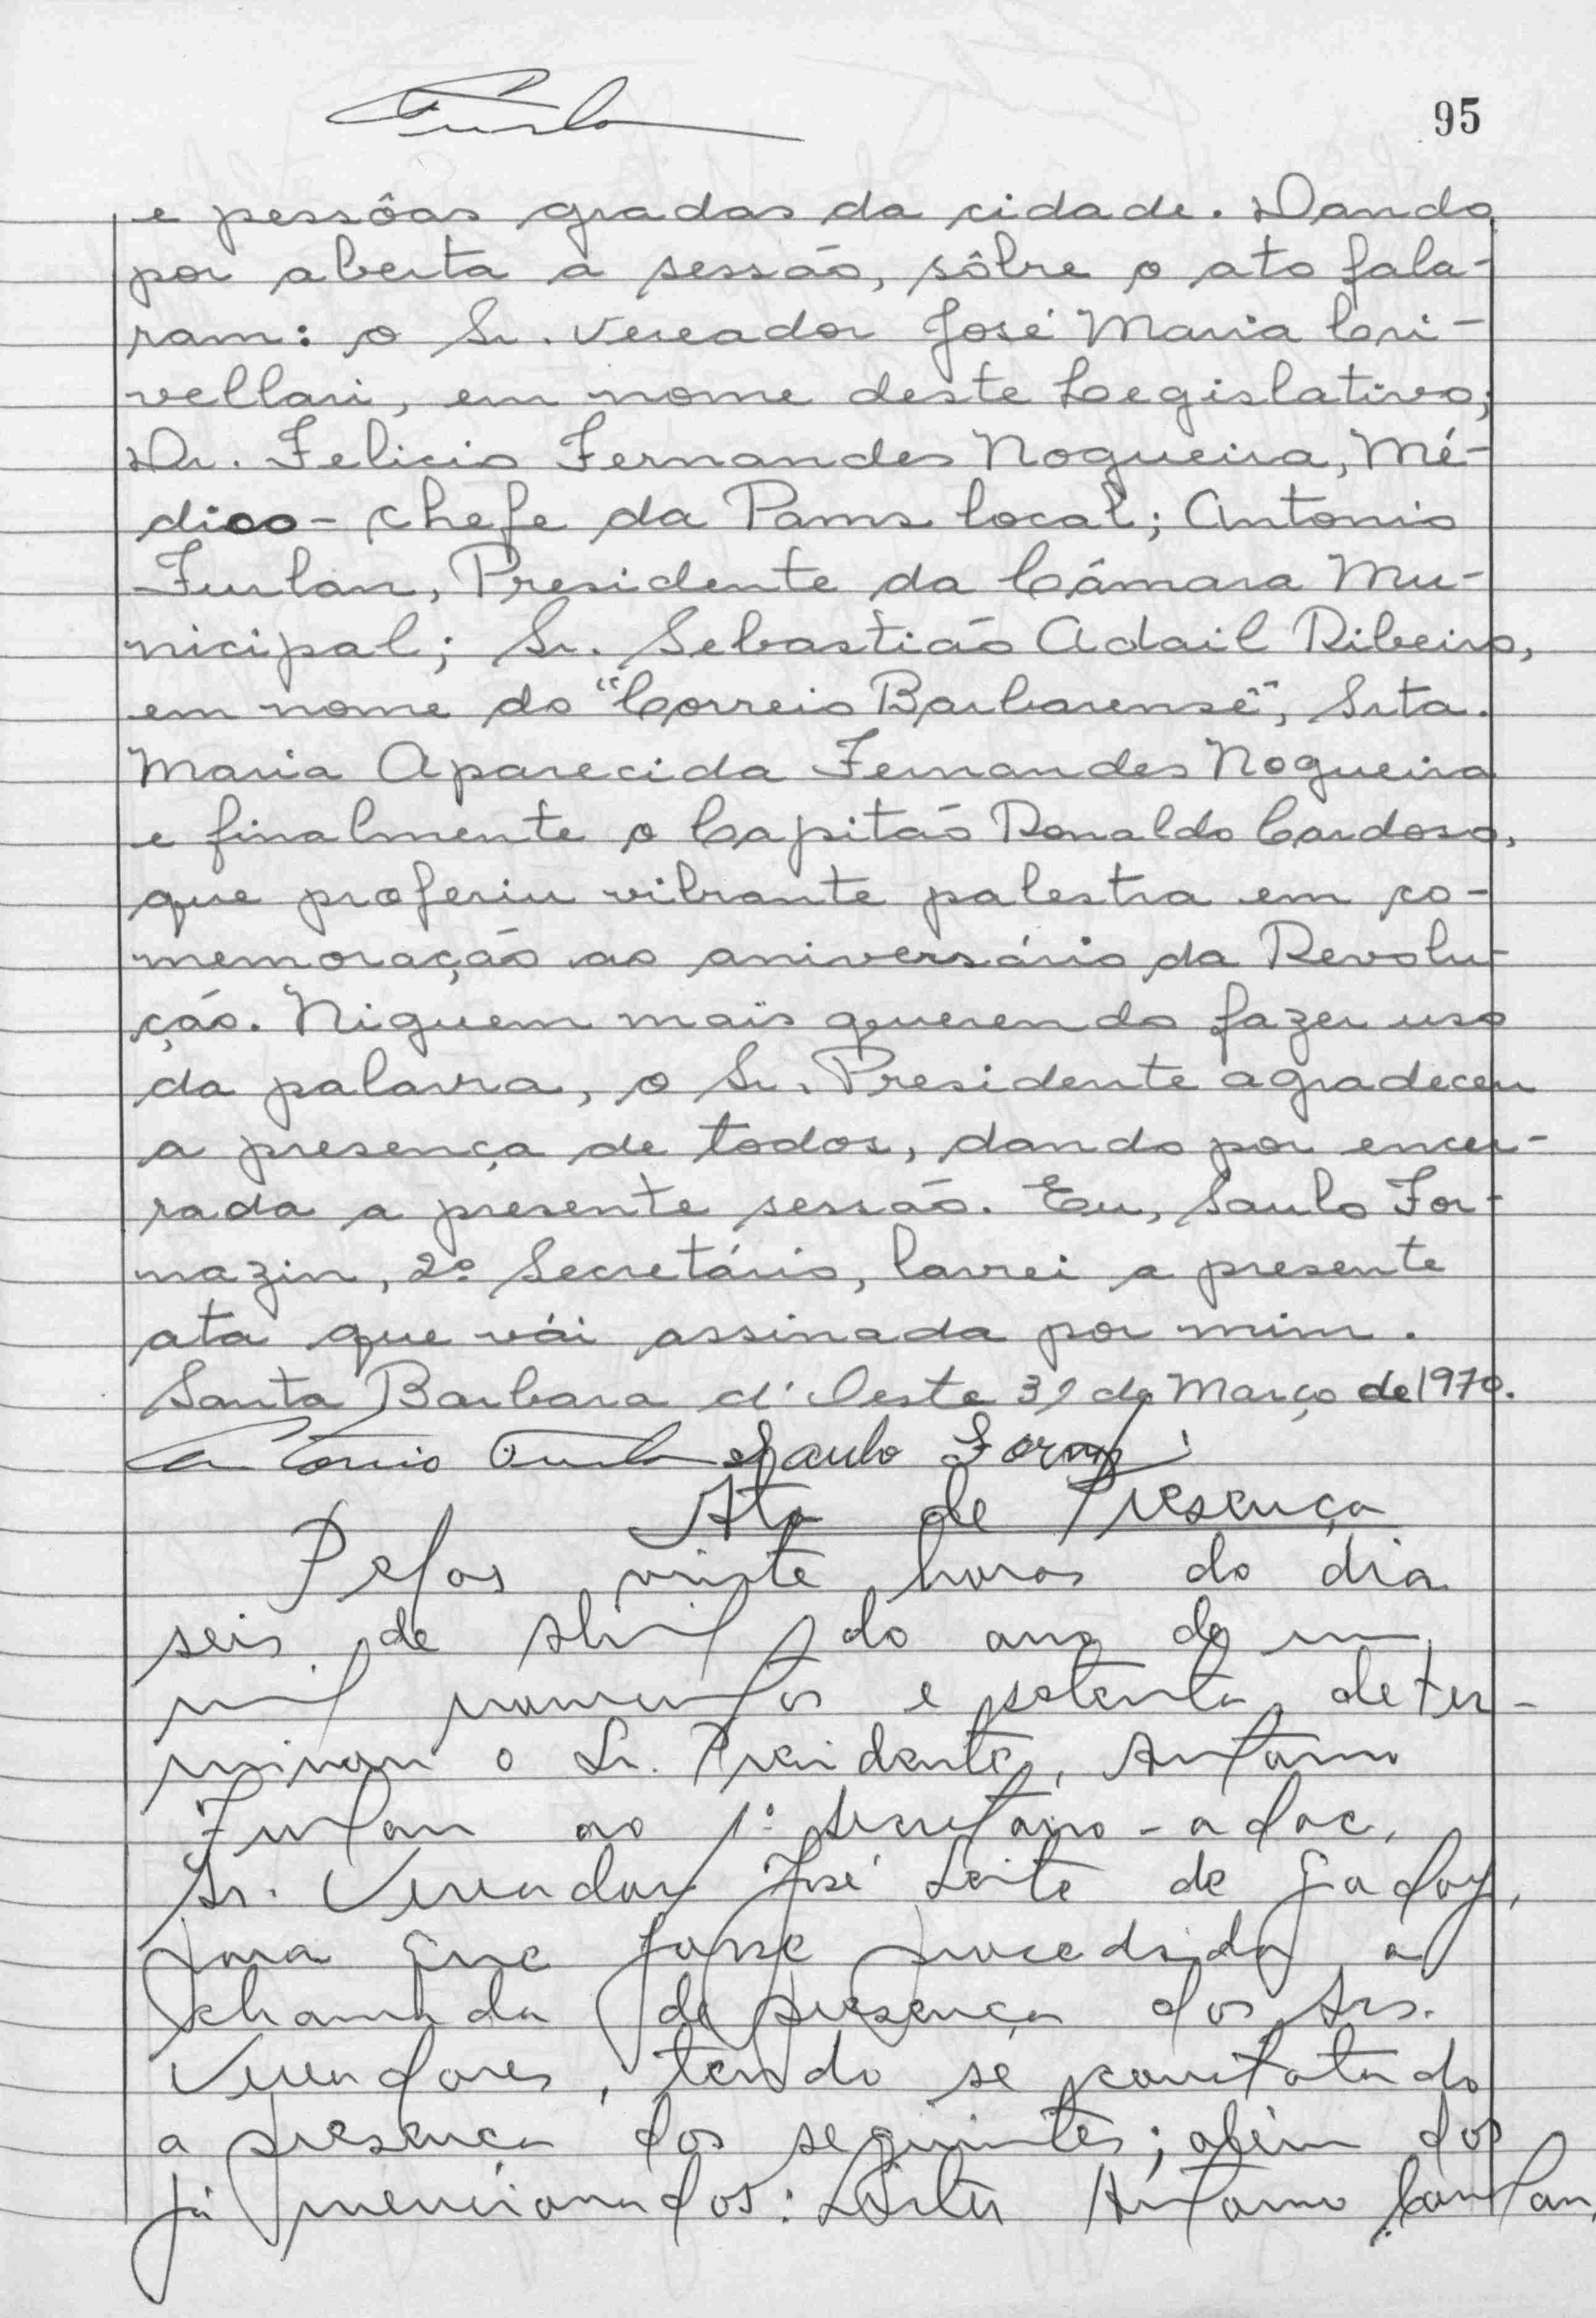 Furlan
95
e pessôas gradas da cidade. Dando
por aberta a sessão, sôbre o ato fala-
ram: o Sr. Vereador José Maria Cri-
vellari, em nome deste Legislativo;
Dr. Felicio Fernandes Nogueira, Mé-
dico-chefe da Pams local; Antonio
Furlan, Presidente da Câmara Mu-
nicipal; Sr. Sebastião Adail Ribeiro,
em nome do "Correio Barbarensê", Srta.
Maria Aparecida Fernandes Nogueira
e finalmente o Capitão Ronaldo Cardoso,
que proferiu vibrante palestra em co-
memoração ao aniversário da Revolu-
ção. Niguem mais querendo fazer uso
da palavra, o Sr. Presidente agradeceu
a presença de todos, dando por encer-
rada a presente sessão. Eu, Saulo For-
nazin, 2º Secretário, lavrei a presente
ata que vái assinada por mim.
Santa Barbara d'Oeste 31 de Março de 1970.
Antonio Furlan Saulo
Ata de Presença
Pelas vinte horas do dia
seis de abril do ano de um
mil novecentos e setenta, deter-
minou o Sr. Presidente, Antonio
Furlan ao 1º Secretario-adoc,
Sr. Vereador José Leite de Godoy,
para que fosse procedida a
chamada de presença dos Srs.
Vereadores, tendo se constatado
a presença dos seguintes; além dos
já mencionados: Antonio